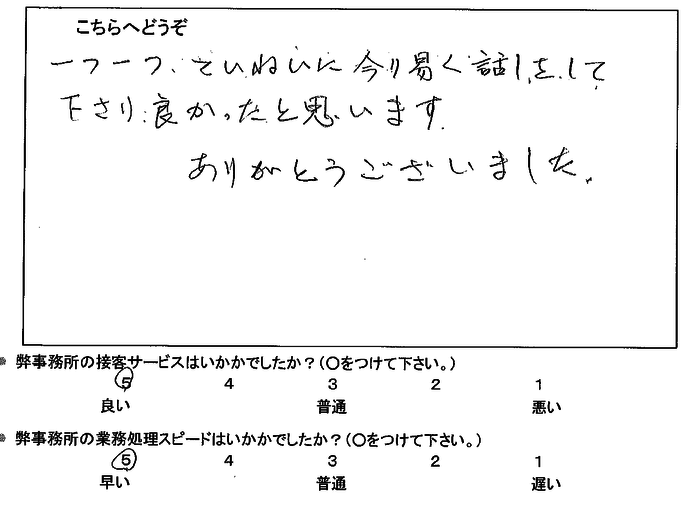 こちらへどうぞ
一つ一つ、ていねいに分り易く話しをして
下さり、良かったと思います。
ありがとうございました。
弊事務所の接客サービスはいかかでしたか？(○をつけて下さい。)
5 4 3 2 1
良い 普通 悪い
弊事務所の業務処理スピードはいかかでしたか？(○をつけて下さい。)
5 4 3 2 1
早い 普通 遅い